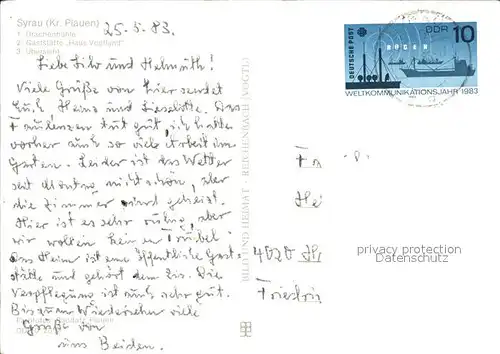 Syrau (Kr. Plauen)
1. Drachenhöhle
2. Gaststätte „Haus Vogtland"
3. Übersicht
25. 5. 83.
Liebe und Helmuth!
Viele Grüße von hier sendet
Euch Heinz und Lieselotte. Das
Faulenzen tut gut, ich hatte
vorher auch so viel Arbeit im
Garten. Leider ist das Wetter
seit Montag nicht schön, aber
die Zimmer sind geheizt.
Hier ist es sehr ruhig, aber
wir wollen keinen Trubel.
Das Heim ist eine öffentliche Gast-
stätte und gehört dem Die
Verpflegung ist auch sehr gut.
Bis zum Wiedersehen viele
Grüße von
uns Beiden.
BILD UND HEIMAT · REICHENBACH (VOGTL)
DEUTSCHE POST
DDR 10
RÜGEN
WELTKOMMUNIKATIONSJAHR 1983
4020
privacy protection
Datenschutz